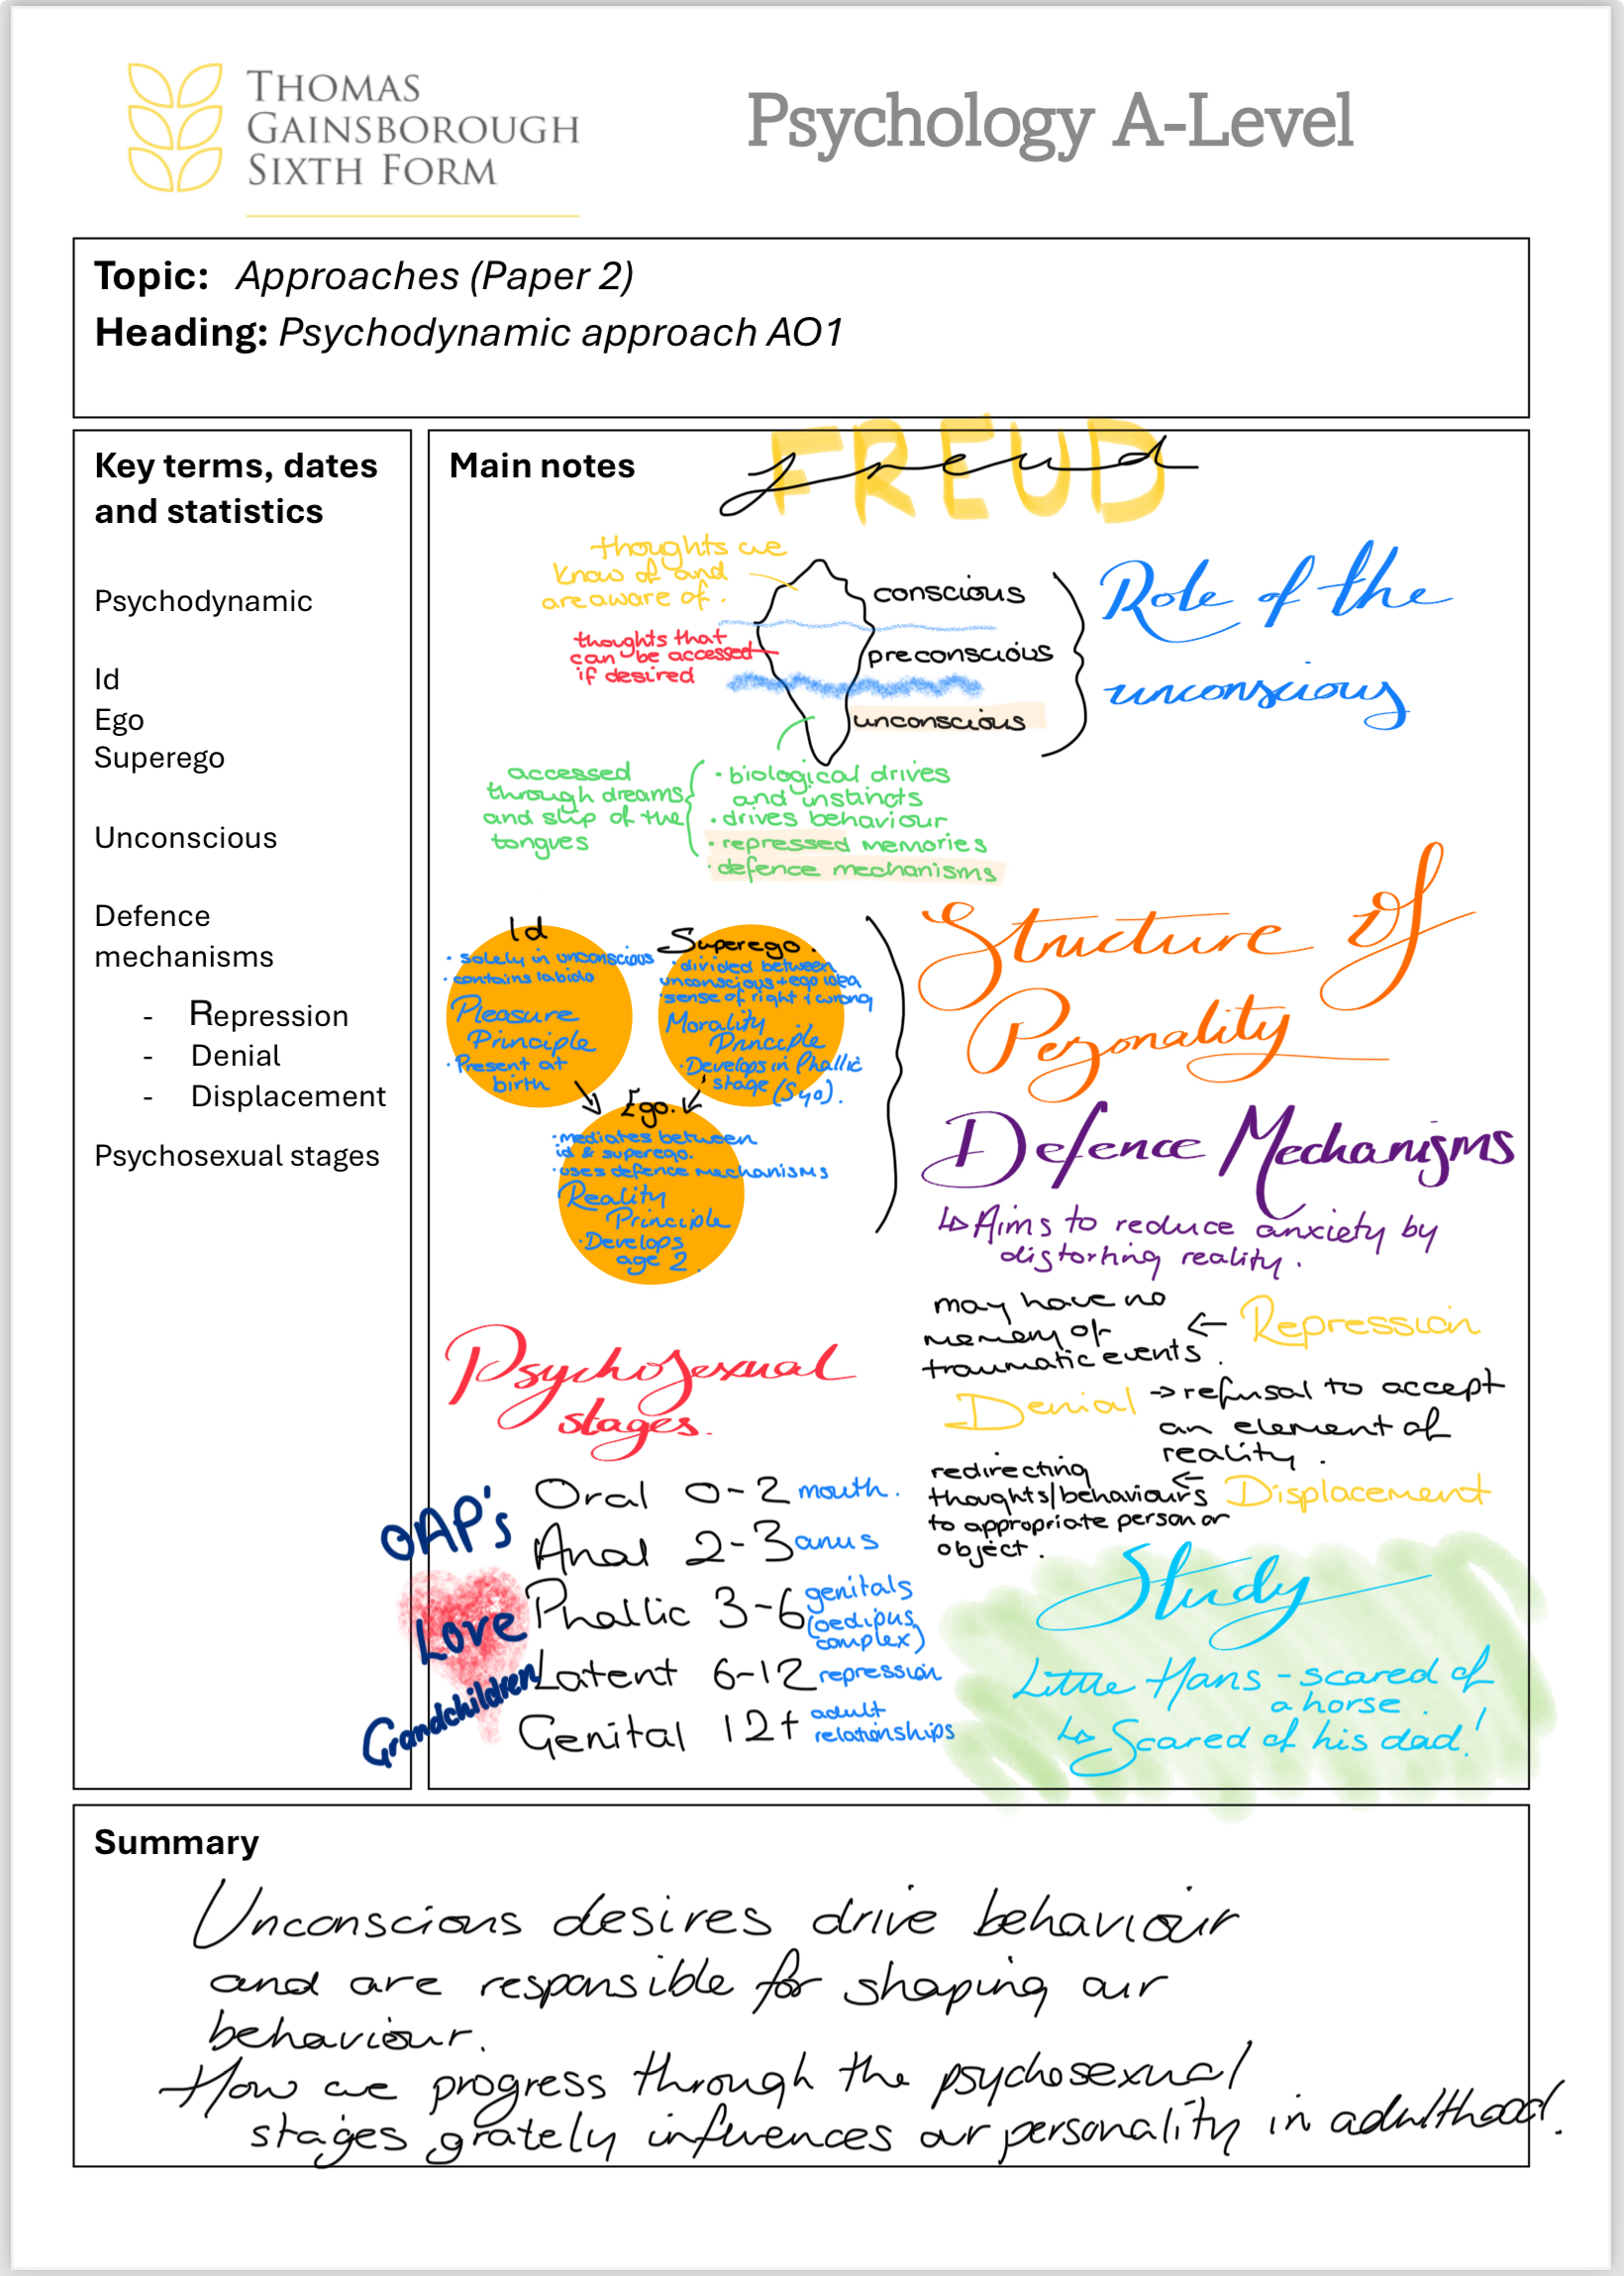 THOMAS
GAINSBOROUGH
SIXTH FORM
Psychology A-Level
Topic: Approaches (Paper 2)
Heading: Psychodynamic approach AO1
Key terms, dates
and statistics
Psychodynamic
Id
Ego
Superego
Unconscious
Defence
mechanisms
- Repression
- Denial
- Displacement
Psychosexual stages
Main notes
FREUD
freud
thoughts we
know of and
are aware of.
thoughts that
can be accessed
if desired
conscious
preconscious
unconscious
Role of the
unconscious
accessed
through dreams
and slip of the
tongues
• biological drives
and instincts
• drives behaviour
• repressed memories
• defence mechanisms
Id
• solely in unconscious
• contains labido
Pleasure
Principle
• Present at
birth
Superego.
• divided between
unconscious + ego idea
• sense of right + wrong
Morality
Principle
• Develops in Phallic
stage (5yo).
Ego.
• mediates between
id & superego.
• uses defence mechanisms
Reality
Principle
• Develops
age 2.
Structure of
Personality
Defence Mechanisms
↳ Aims to reduce anxiety by
distorting reality.
may have no
memory of
traumatic events.
← Repression
Denial → refusal to accept
an element of
reality.
redirecting
thoughts/behaviours
to appropriate person or
object.
← Displacement
Psychosexual
stages.
OAP's
Love
Grandchildren
Oral 0-2 mouth.
Anal 2-3 anus
Phallic 3-6 genitals
(oedipus
complex)
Latent 6-12 repression
Genital 12+ adult
relationships
Study
Little Hans - scared of
a horse.
↳ Scared of his dad!
Summary
Unconscious desires drive behaviour
and are responsible for shaping our
behaviour.
How we progress through the psychosexual
stages grately influences our personality in adulthood.